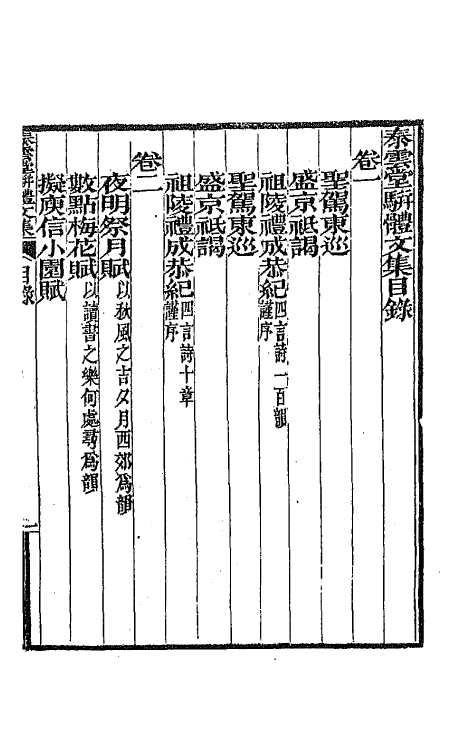 泰雲堂駢體文集目錄
卷一
聖駕東巡
盛京祗謁
祖陵禮成恭紀四言詩一百韻謹序
聖駕東巡
盛京祗謁
祖陵禮成恭紀四言詩十章謹序
卷二
夜明祭月賦以秋風之吉夕月西郊爲韻
數點梅花賦以讀書之樂何處尋爲韻
擬庾信小園賦
泰雲堂駢體文集 目錄 一